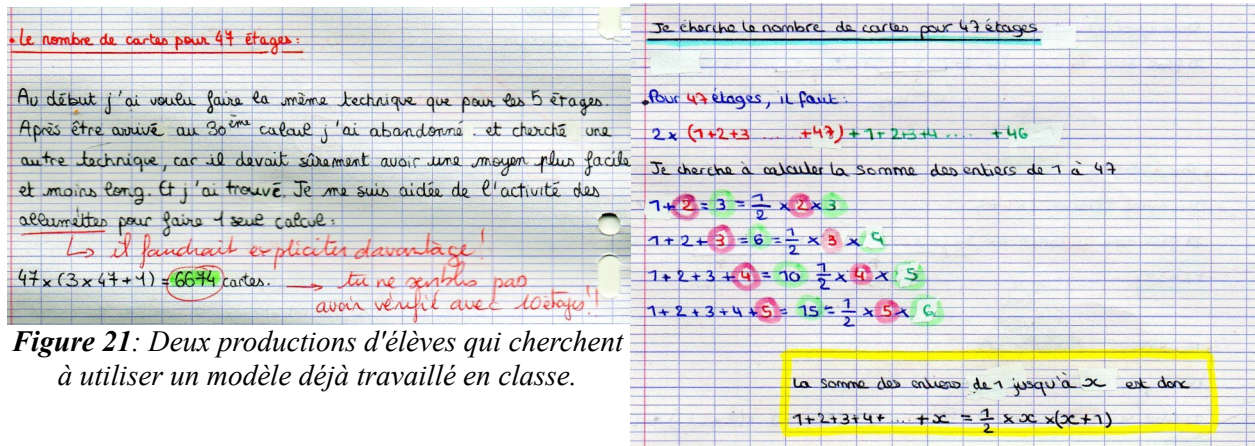 • Le nombre de cartes pour 47 étages :
Au début j'ai voulu faire la même technique que pour les 5 étages.
Après être arrivé au 30ème calcul j'ai abandonné et cherché une
autre technique, car il devait sûrement avoir une moyen plus facile
et moins long. Et j'ai trouvé. Je me suis aidée de l'activité des
allumettes pour faire 1 seul calcul :
↳ il faudrait expliciter davantage !
47 x (3 x 47 + 1) = 6674 cartes. → tu ne sembles pas
avoir vérifié avec 10 étages !!
Figure 21: Deux productions d'élèves qui cherchent
à utiliser un modèle déjà travaillé en classe.
Je cherche le nombre de cartes pour 47 étages
• Pour 47 étages, il faut :
2 x (1+2+3 ..... +47) + 1+2+3+4 ..... + 46
Je cherche à calculer la somme des entiers de 1 à 47
1+2 = 3 = 1/2 x 2 x 3
1+2+3 = 6 = 1/2 x 3 x 4
1+2+3+4 = 10 1/2 x 4 x 5
1+2+3+4+5 = 15 = 1/2 x 5 x 6
La somme des entiers de 1 jusqu'à x est donc
1+2+3+4+ ... +x = 1/2 x x x(x+1)